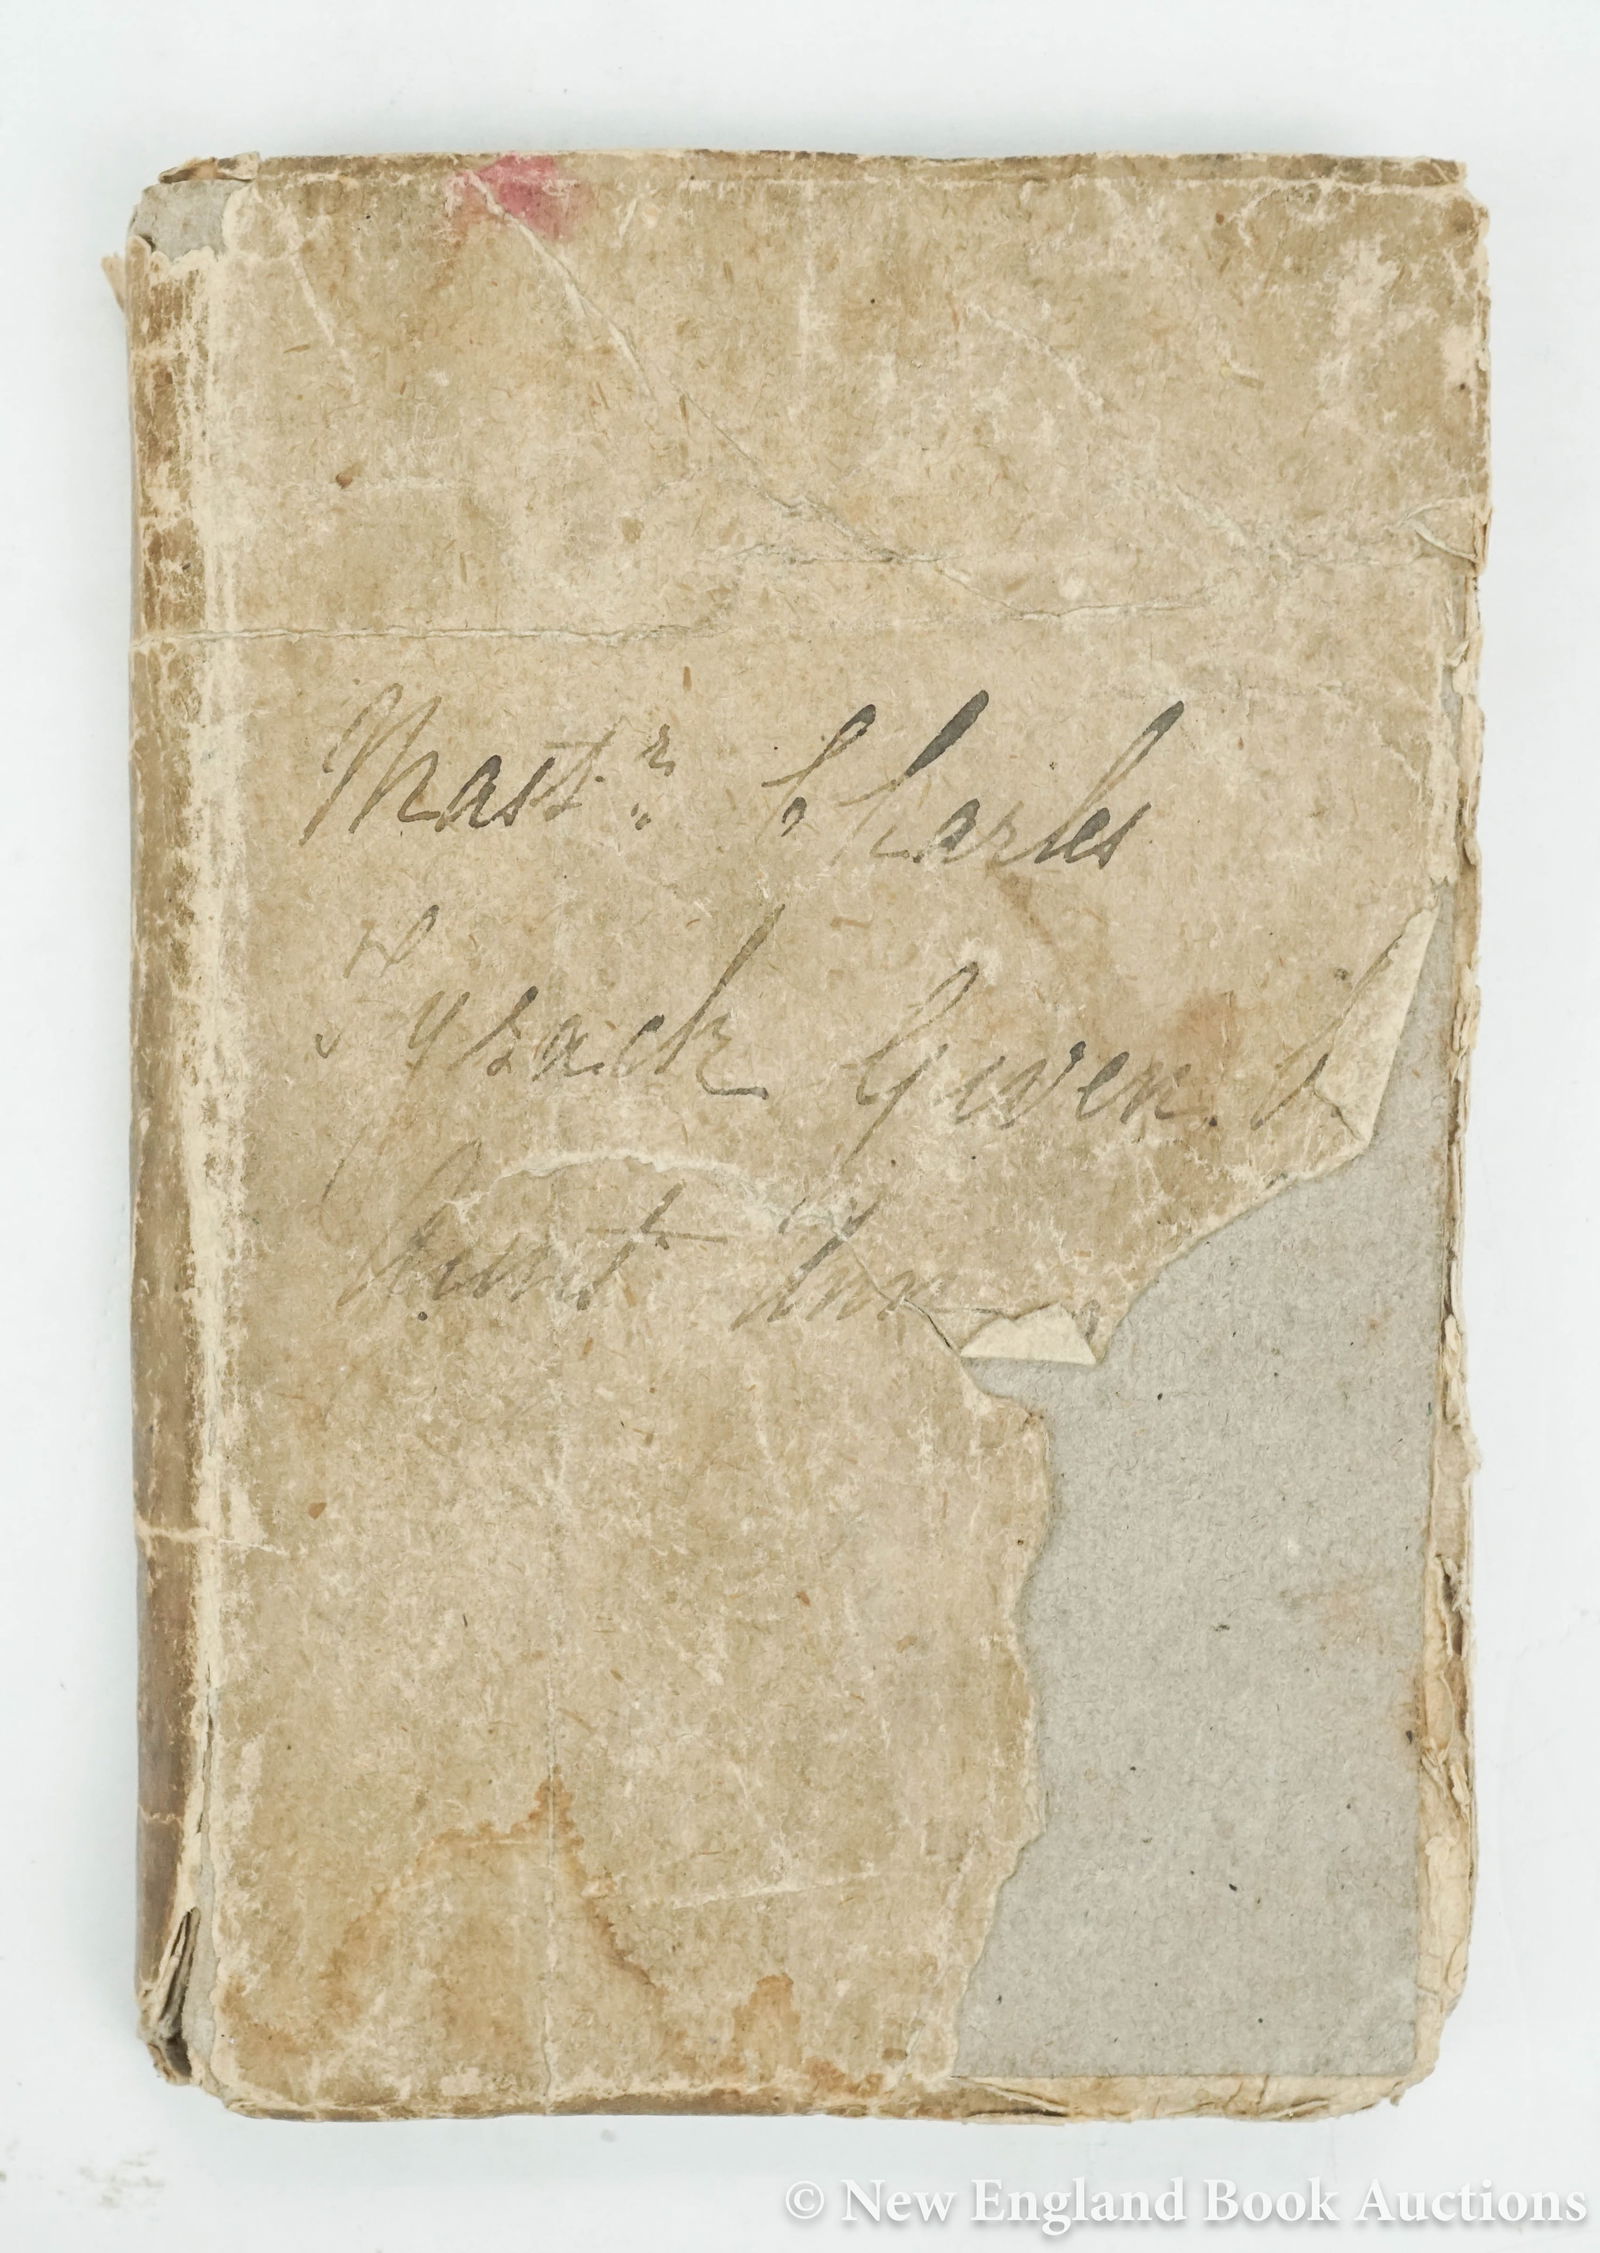 Mastr. Charles
Isack Given b
Aunt Ann
© New England Book Auctions